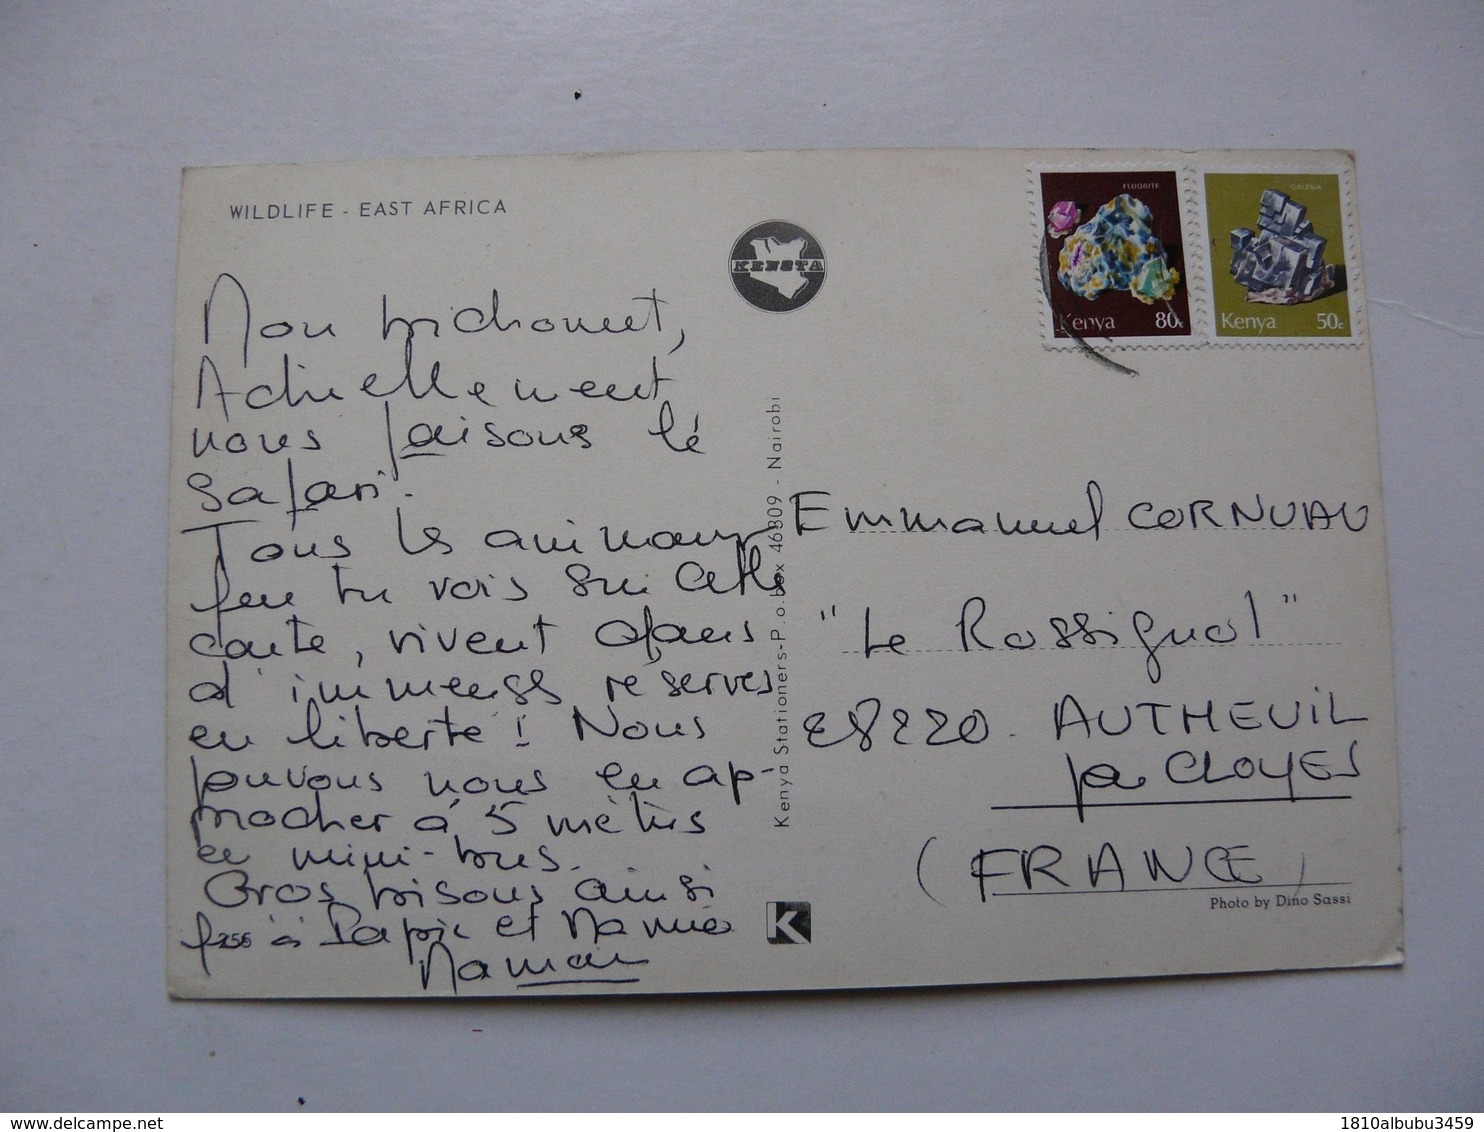 WILDLIFE - EAST AFRICA
KENSTA
FLUORITE
Kenya 80c
GALENA
Kenya 50c
Mon bichounet,
Actuellement
nous faisons lé
safari.
Tous les animaux
que tu vois sur cette
carte, vivent dans
d'immenses réserves
en liberté ! Nous
pouvons nous en ap-
procher à 5 mètres
en mini-bus.
Gros bisous ainsi
qu'à Papic et Mamie
Maman
255
Kenya Stationers-P.o.box 46809 - Nairobi
K
Emmanuel CORNUAU
"Le Rossignol"
28220. AUTHEUIL
par CLOYES
(FRANCE)
Photo by Dino Sassi
delcampe.net
1810albubu3459